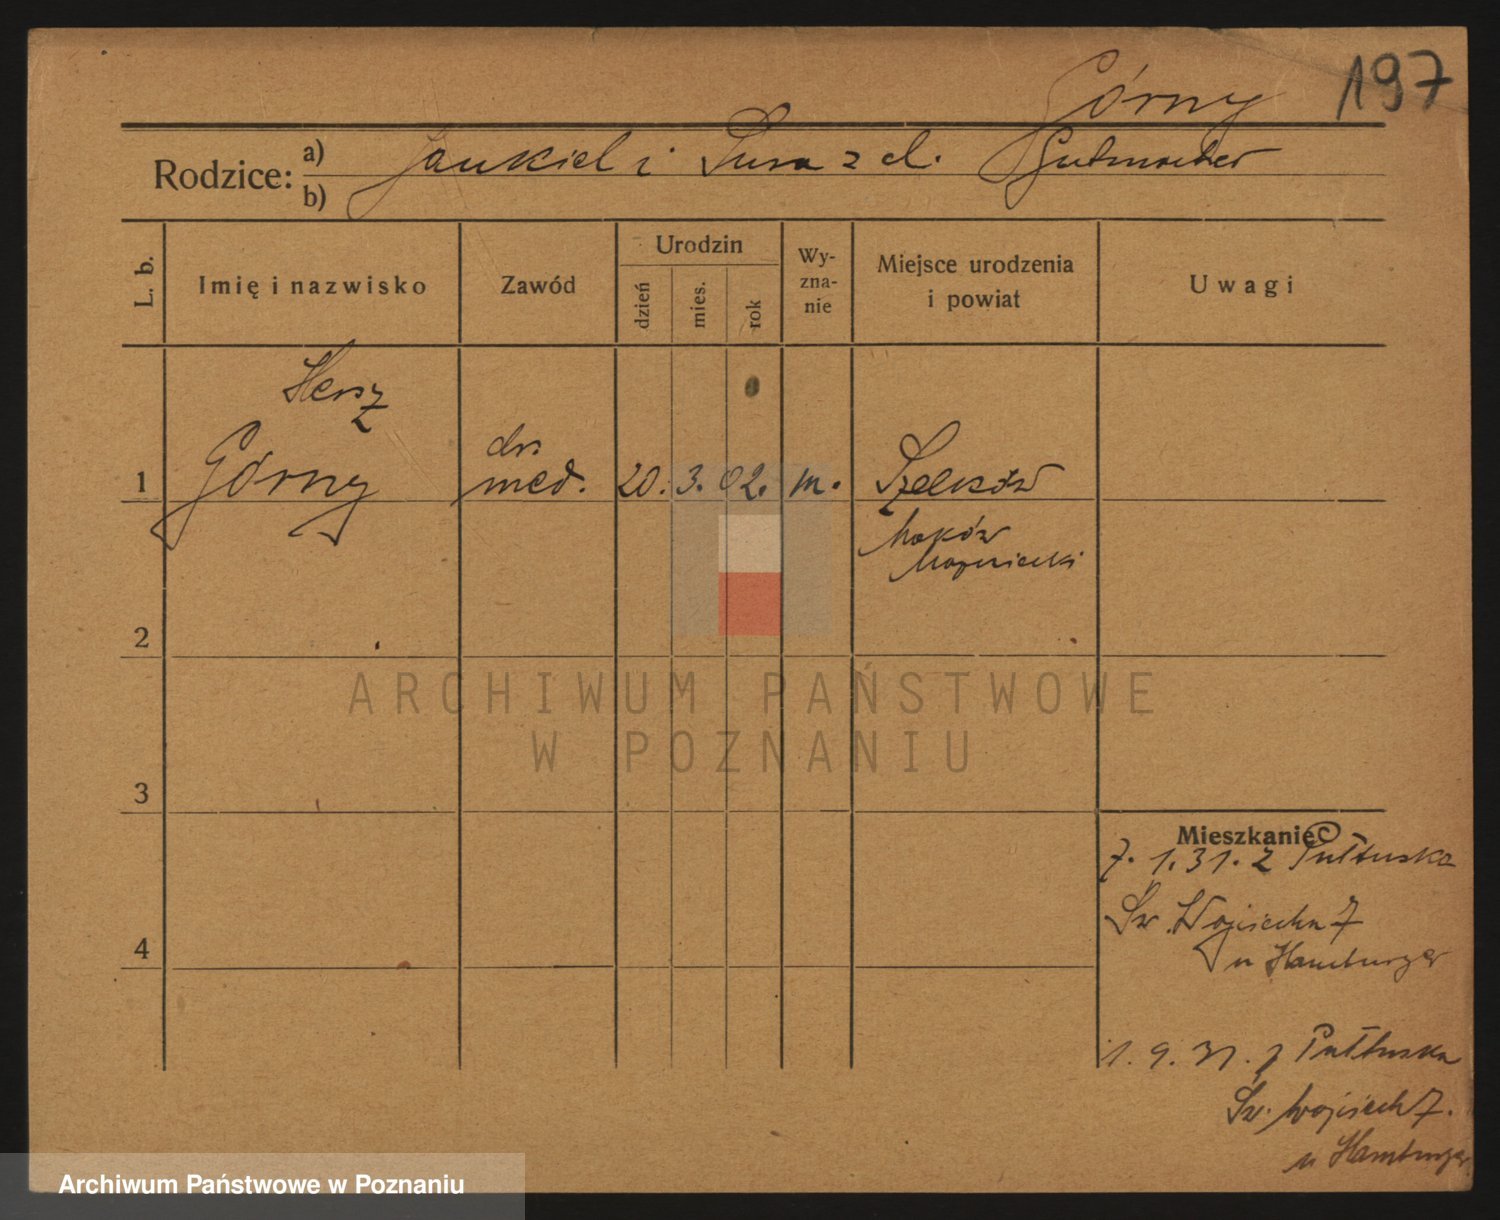 197
Górny
Rodzice: a) Jankiel i Sura z d. Gutmacher
b)
L. b. Imię i nazwisko Zawód Urodzin dzień mies. rok Wy-zna-nie Miejsce urodzenia i powiat Uwagi
Hersz
dr.
1 Górny med. 20. 3. 02. m. Szelków
Maków
Mazowiecki
2
ARCHIWUM PAŃSTWOWE
W POZNANIU
3
Mieszkanie
7. 1. 31. z Pułtuska
Św. Wojciecha 7
4
u Hamburger
1. 9. 31. z Pułtuska
Św. Wojciech 7.
u Hamburger
Archiwum Państwowe w Poznaniu